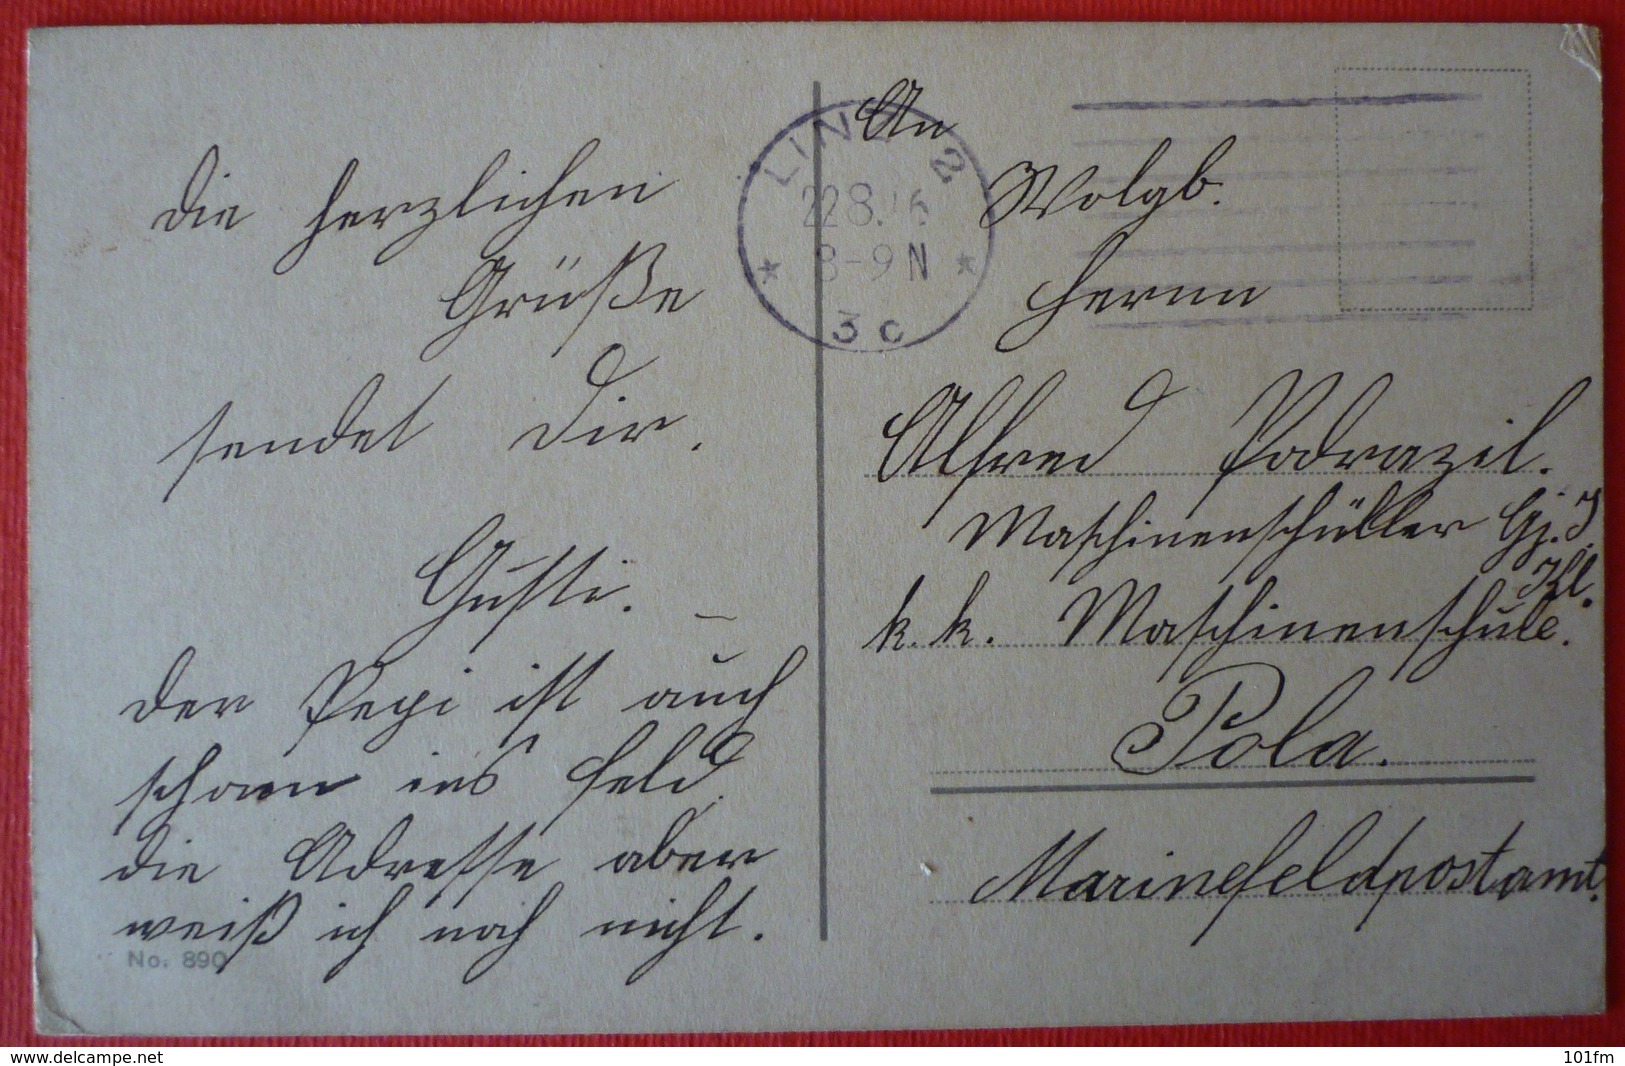 Die herzlichen
Grüße
sendet Dir.
Gusti. –
Der Pepi ist auch
schon ins Feld.
die Adresse aber
weiß ich noch nicht.
No. 890
LINZ 2
22.8.16
8-9 N
* *
3 c
An
Wolgb.
Herrn
Alfred Podrazil.
Maschinenschüller Gj. I.
Kl.
k. k. Maschinenschule.
Pola.
Marinefeldpostamt.
delcampe.net
101fm